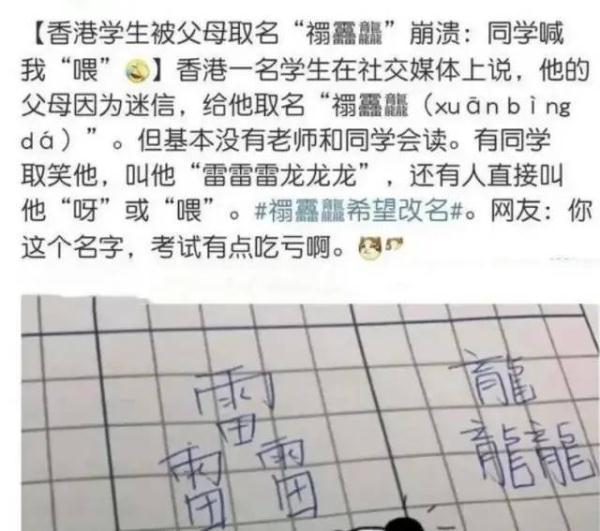 【香港学生被父母取名“禤靐龘”崩溃：同学喊
我“喂”】香港一名学生在社交媒体上说，他的
父母因为迷信，给他取名“禤靐龘（xuānbìng
dá）”。但基本没有老师和同学会读。有同学
取笑他，叫他“雷雷雷龙龙龙”，还有人直接叫
他“呀”或“喂”。#禤靐龘希望改名#。网友：你
这个名字，考试有点吃亏啊。
雷 龍
雷雷 龍龍